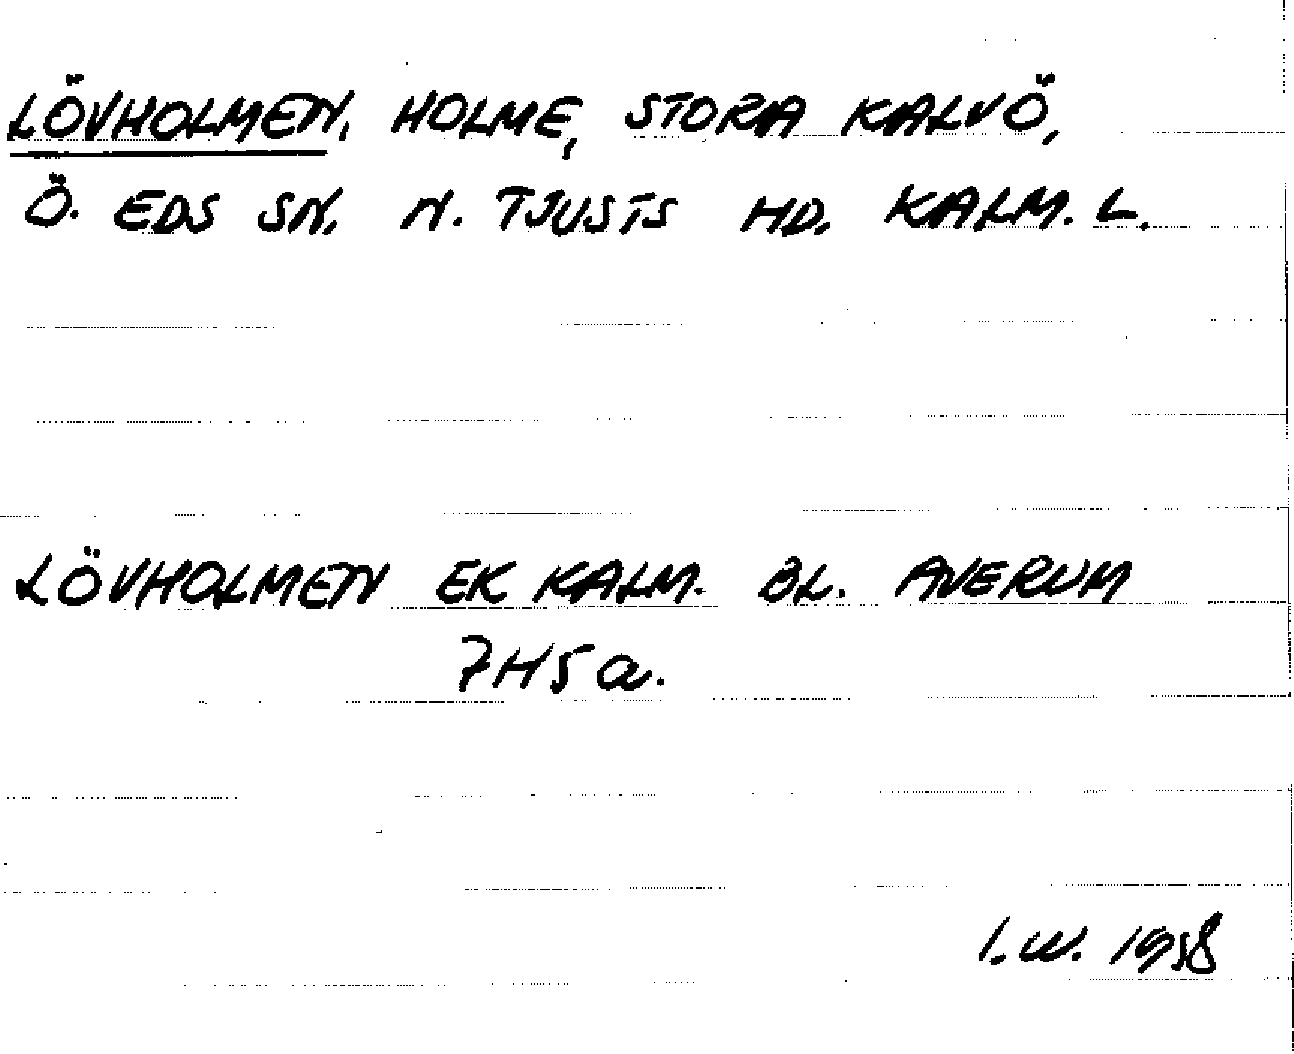 LÖVHOLMEN, HOLME, STORA KALVÖ,
Ö. EDS SN. N. TJUSTS HD. KALM. L.
LÖVHOLMEN EK KALM. BL. AVERUM
7H5a.
I.W. 1958